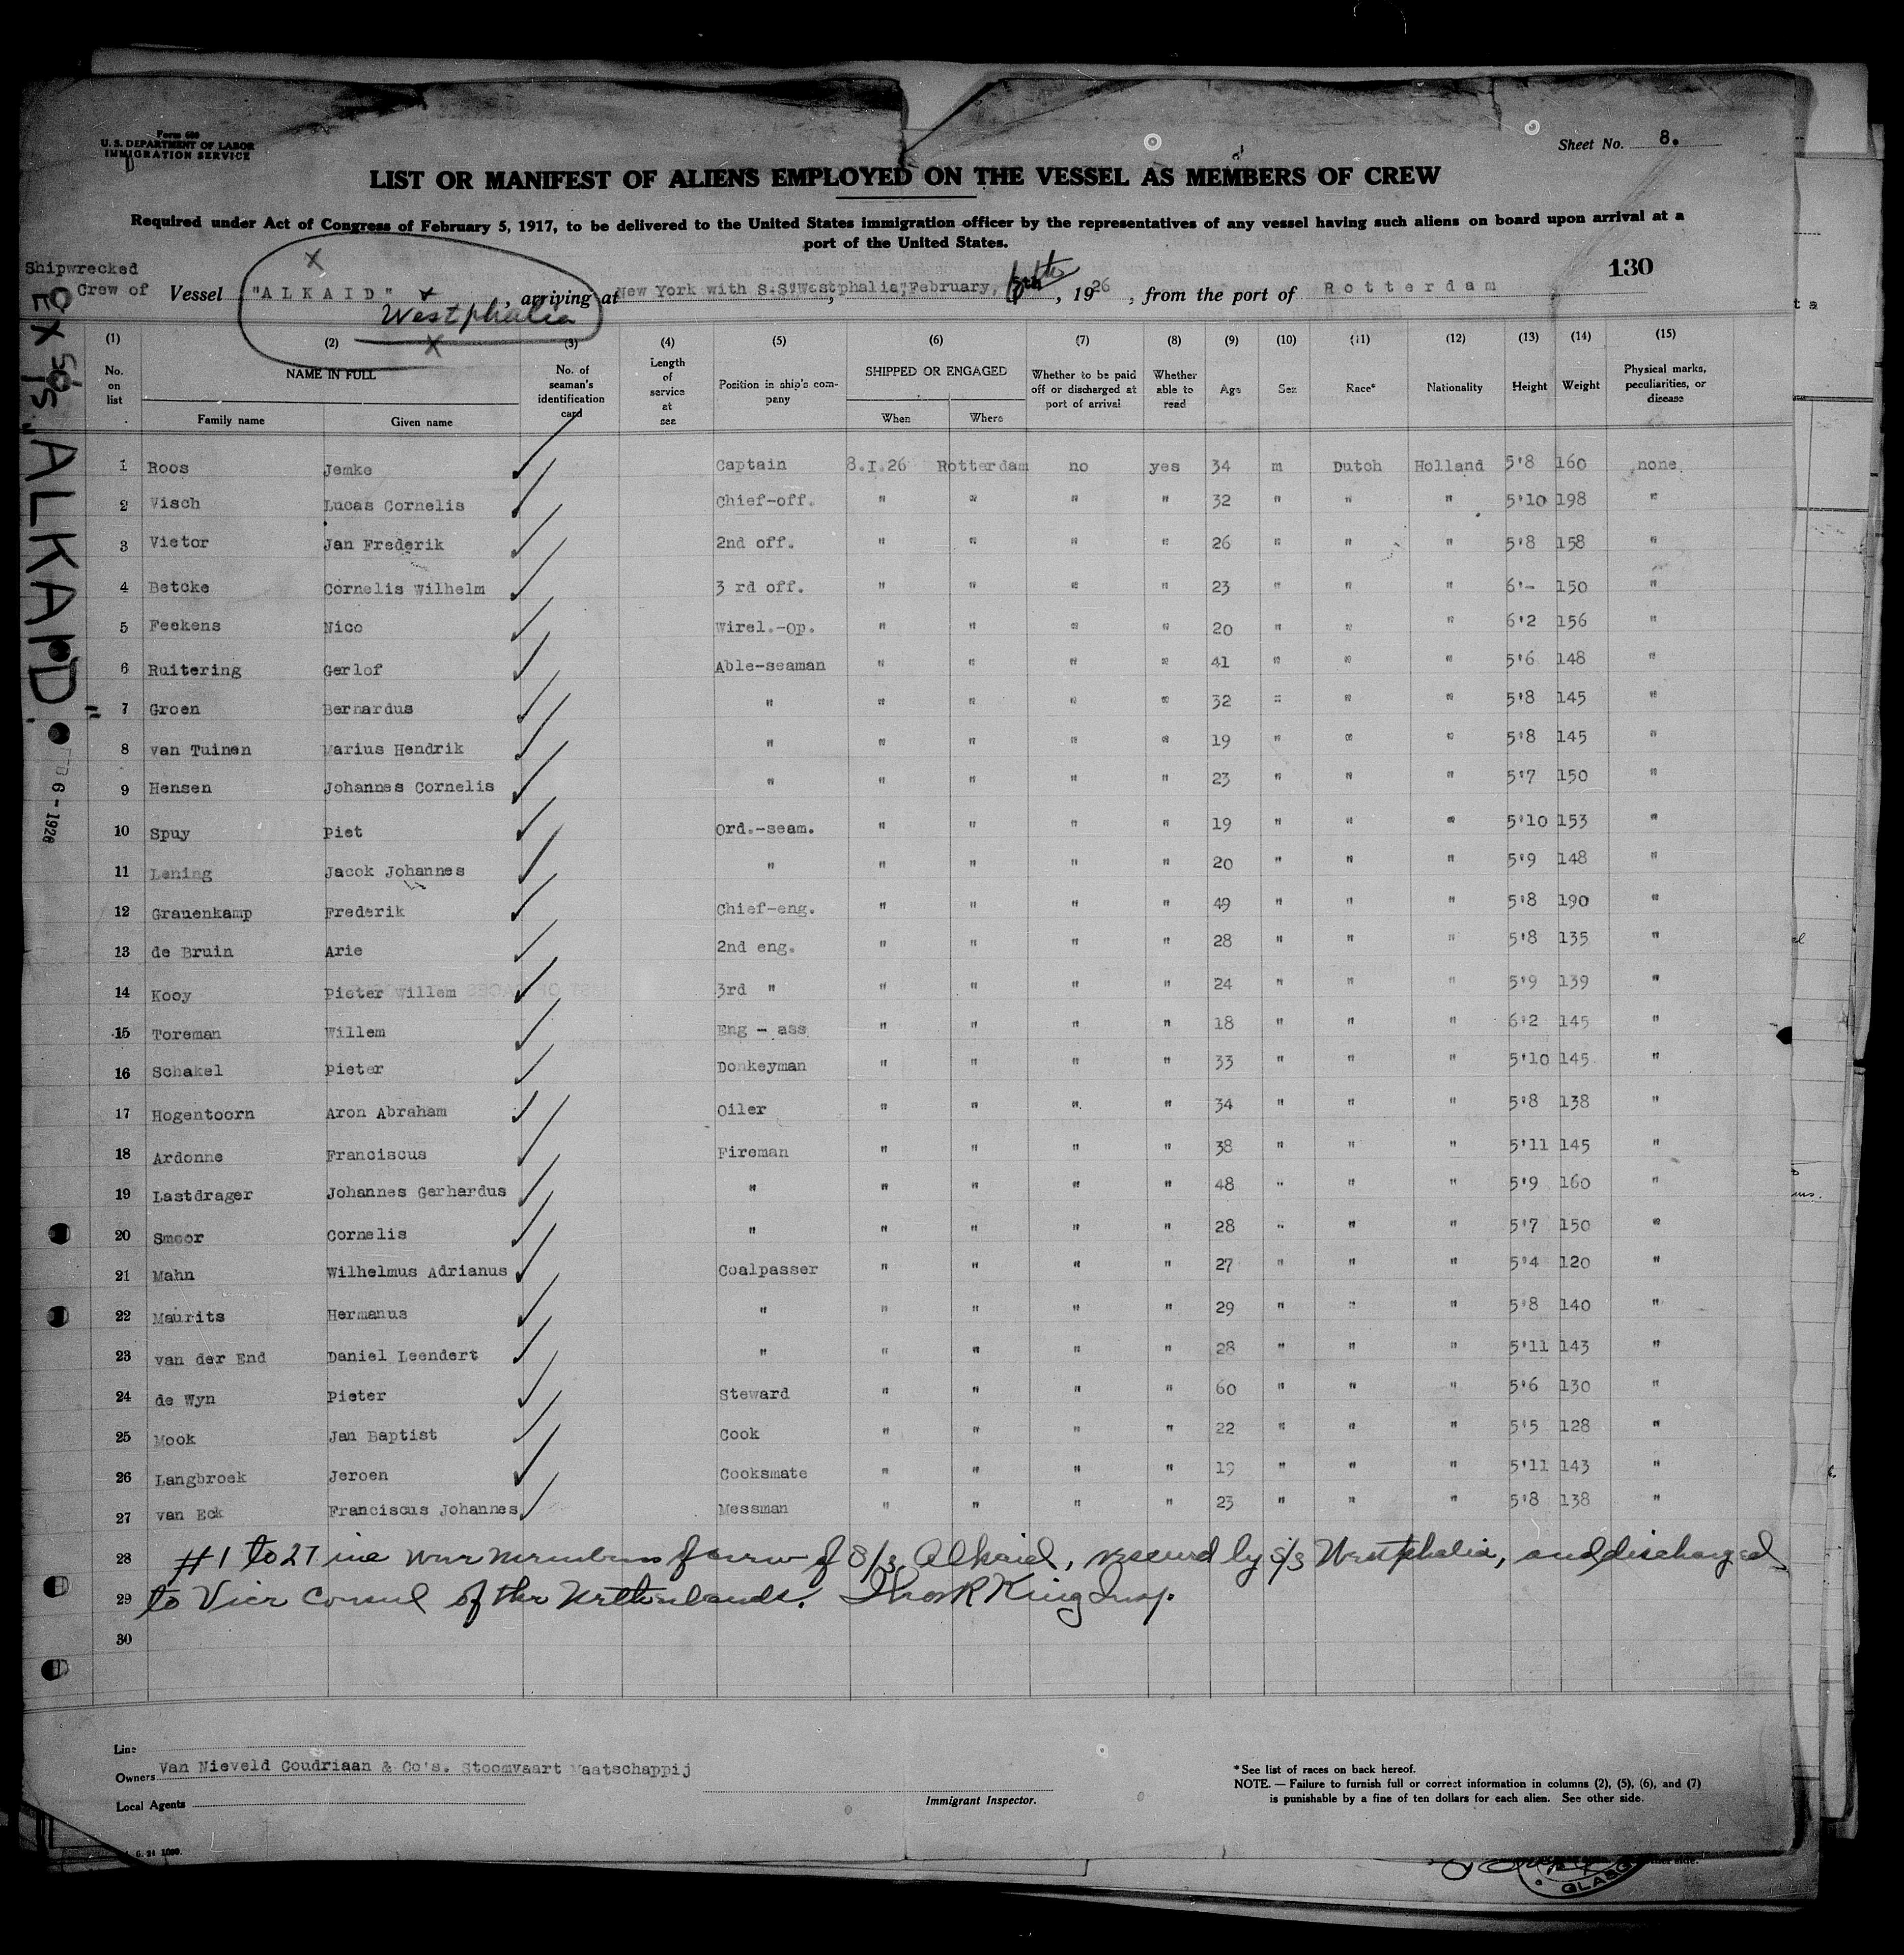 Form 680
U. S. DEPARTMENT OF LABOR
IMMIGRATION SERVICE
Sheet No. 8.
LIST OR MANIFEST OF ALIENS EMPLOYED ON THE VESSEL AS MEMBERS OF CREW
Required under Act of Congress of February 5, 1917, to be delivered to the United States immigration officer by the representatives of any vessel having such aliens on board upon arrival at a
port of the United States.
130
Shipwrecked
Crew of Vessel "ALKAID", arriving at New York with S.S. "Westphalia", February, , 1926, from the port of Rotterdam
Westphalia
EX SS. "ALKAID"
6 - 1926
(1) (2) (3) (4) (5) (6) (7) (8) (9) (10) (11) (12) (13) (14) (15)
No. on list NAME IN FULL No. of seaman's identification card Length of service at sea Position in ship's company SHIPPED OR ENGAGED Whether to be paid off or discharged at port of arrival Whether able to read Age Sex Race* Nationality Height Weight Physical marks, peculiarities, or disease
Family name Given name When Where
1 Roos Jemke Captain 8.I.26 Rotterdam no yes 34 m Dutch Holland 5'8 160 none
2 Visch Lucas Cornelis Chief-off. " " " " 32 " " " 5'10 198 "
3 Vietor Jan Frederik 2nd off. " " " " 26 " " " 5'8 158 "
4 Betcke Cornelis Wilhelm 3 rd off. " " " " 23 " " " 6'- 150 "
5 Feekens Nico Wirel.-Op. " " " " 20 " " " 6'2 156 "
6 Ruitering Gerlof Able-seaman " " " " 41 " " " 5'6 148 "
7 Groen Bernardus " " " " " 32 " " " 5'8 145 "
8 van Tuinen Marius Hendrik " " " " " 19 " " " 5'8 145 "
9 Hensen Johannes Cornelis " " " " " 23 " " " 5'7 150 "
10 Spuy Piet Ord.-seam. " " " " 19 " " " 5'10 153 "
11 Lening Jacok Johannes " " " " " 20 " " " 5'9 148 "
12 Grauenkamp Frederik Chief-eng. " " " " 49 " " " 5'8 190 "
13 de Bruin Arie 2nd eng. " " " " 28 " " " 5'8 135 "
14 Kooy Pieter Willem 3rd " " " " " 24 " " " 5'9 139 "
15 Toreman Willem Eng - ass " " " " 18 " " " 6'2 145 "
16 Schakel Pieter Donkeyman " " " " 33 " " " 5'10 145 "
17 Hogentoorn Aron Abraham Oiler " " " " 34 " " " 5'8 138 "
18 Ardonne Franciscus Fireman " " " " 38 " " " 5'11 145 "
19 Lastdrager Johannes Gerhardus " " " " " 48 " " " 5'9 160 "
20 Smoor Cornelis " " " " " 28 " " " 5'7 150 "
21 Mahn Wilhelmus Adrianus Coalpasser " " " " 27 " " " 5'4 120 "
22 Maurits Hermanus " " " " " 29 " " " 5'8 140 "
23 van der End Daniel Leendert " " " " " 28 " " " 5'11 143 "
24 de Wyn Pieter Steward " " " " 60 " " " 5'6 130 "
25 Mook Jan Baptist Cook " " " " 22 " " " 5'5 128 "
26 Langbroek Jeroen Cooksmate " " " " 19 " " " 5'11 143 "
27 van Eck Franciscus Johannes Messman " " " " 23 " " " 5'8 138 "
28 #1 to 27 inc were members of crew of S/S Alkaid, rescued by S/S Westphalia, and discharged
29 to Vice Consul of the Netherlands. Thos R King Insp.
30
Line
Owners Van Nieveld Goudriaan & Co's. Stoomvaart Maatschappij
Local Agents
Immigrant Inspector.
*See list of races on back hereof.
NOTE. — Failure to furnish full or correct information in columns (2), (5), (6), and (7)
is punishable by a fine of ten dollars for each alien. See other side.